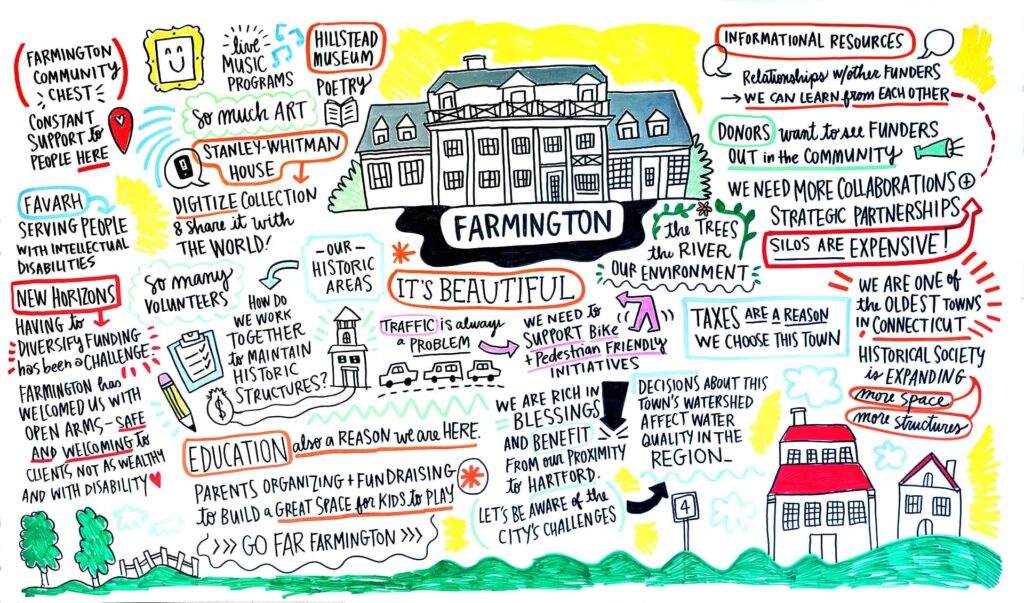 FARMINGTON
COMMUNITY
CHEST
CONSTANT
SUPPORT to
PEOPLE HERE
live
MUSIC
PROGRAMS
HILLSTEAD
MUSEUM
POETRY
so MUCH ART
STANLEY-WHITMAN
HOUSE
DIGITIZE COLLECTION
& SHARE it WITH
THE WORLD!
FAVARH
SERVING PEOPLE
WITH INTELLECTUAL
DISABILITIES
NEW HORIZONS
HAVING to
DIVERSIFY FUNDING
has BEEN a CHALLENGE.
FARMINGTON has
WELCOMED US WITH
OPEN ARMS, - SAFE
AND WELCOMING to
CLIENTS, NOT AS WEALTHY
AND WITH DISABILITY
so MANY
VOLUNTEERS
HOW DO
WE WORK
TOGETHER
to MAINTAIN
HISTORIC
STRUCTURES?
$
- OUR -
HISTORIC
AREAS
FARMINGTON
IT'S BEAUTIFUL
the TREES
the RIVER
OUR ENVIRONMENT
TRAFFIC is always
a PROBLEM
WE NEED to
SUPPORT BiKe
+ Pedestrian FRIENDLY
INITIATIVES
TAXES ARE A REASON
WE CHOOSE THIS TOWN
EDUCATION also a REASON we are HERE
PARENTS ORGANIZING + FUNDRAISING
to BUILD a GREAT SPACE for KIDS to PLAY
>>> GO FAR FARMINGTON >>>
WE ARE RICH IN
BLESSINGS
AND BENEFIT
FROM our PROXIMITY
to HARTFORD.
LET'S BE AWARE of the
CITY'S CHALLENGES
DECISIONS ABOUT THIS
TOWN'S WATERSHED
AFFECT WATER
QUALITY IN THE
REGION_
4
INFORMATIONAL RESOURCES
Relationships w/other FUNDERS
→ WE CAN LEARN from EACH OTHER
DONORS want to see FUNDERS
OUT in the COMMUNITY
WE NEED MORE COLLABORATIONS +
STRATEGIC PARTNERSHIPS
SILOS ARE EXPENSIVE!
WE ARE ONE of
the OLDEST TOWNS
IN CONNECTICUT
HISTORICAL SOCIETY
is EXPANDING
more space
more structures